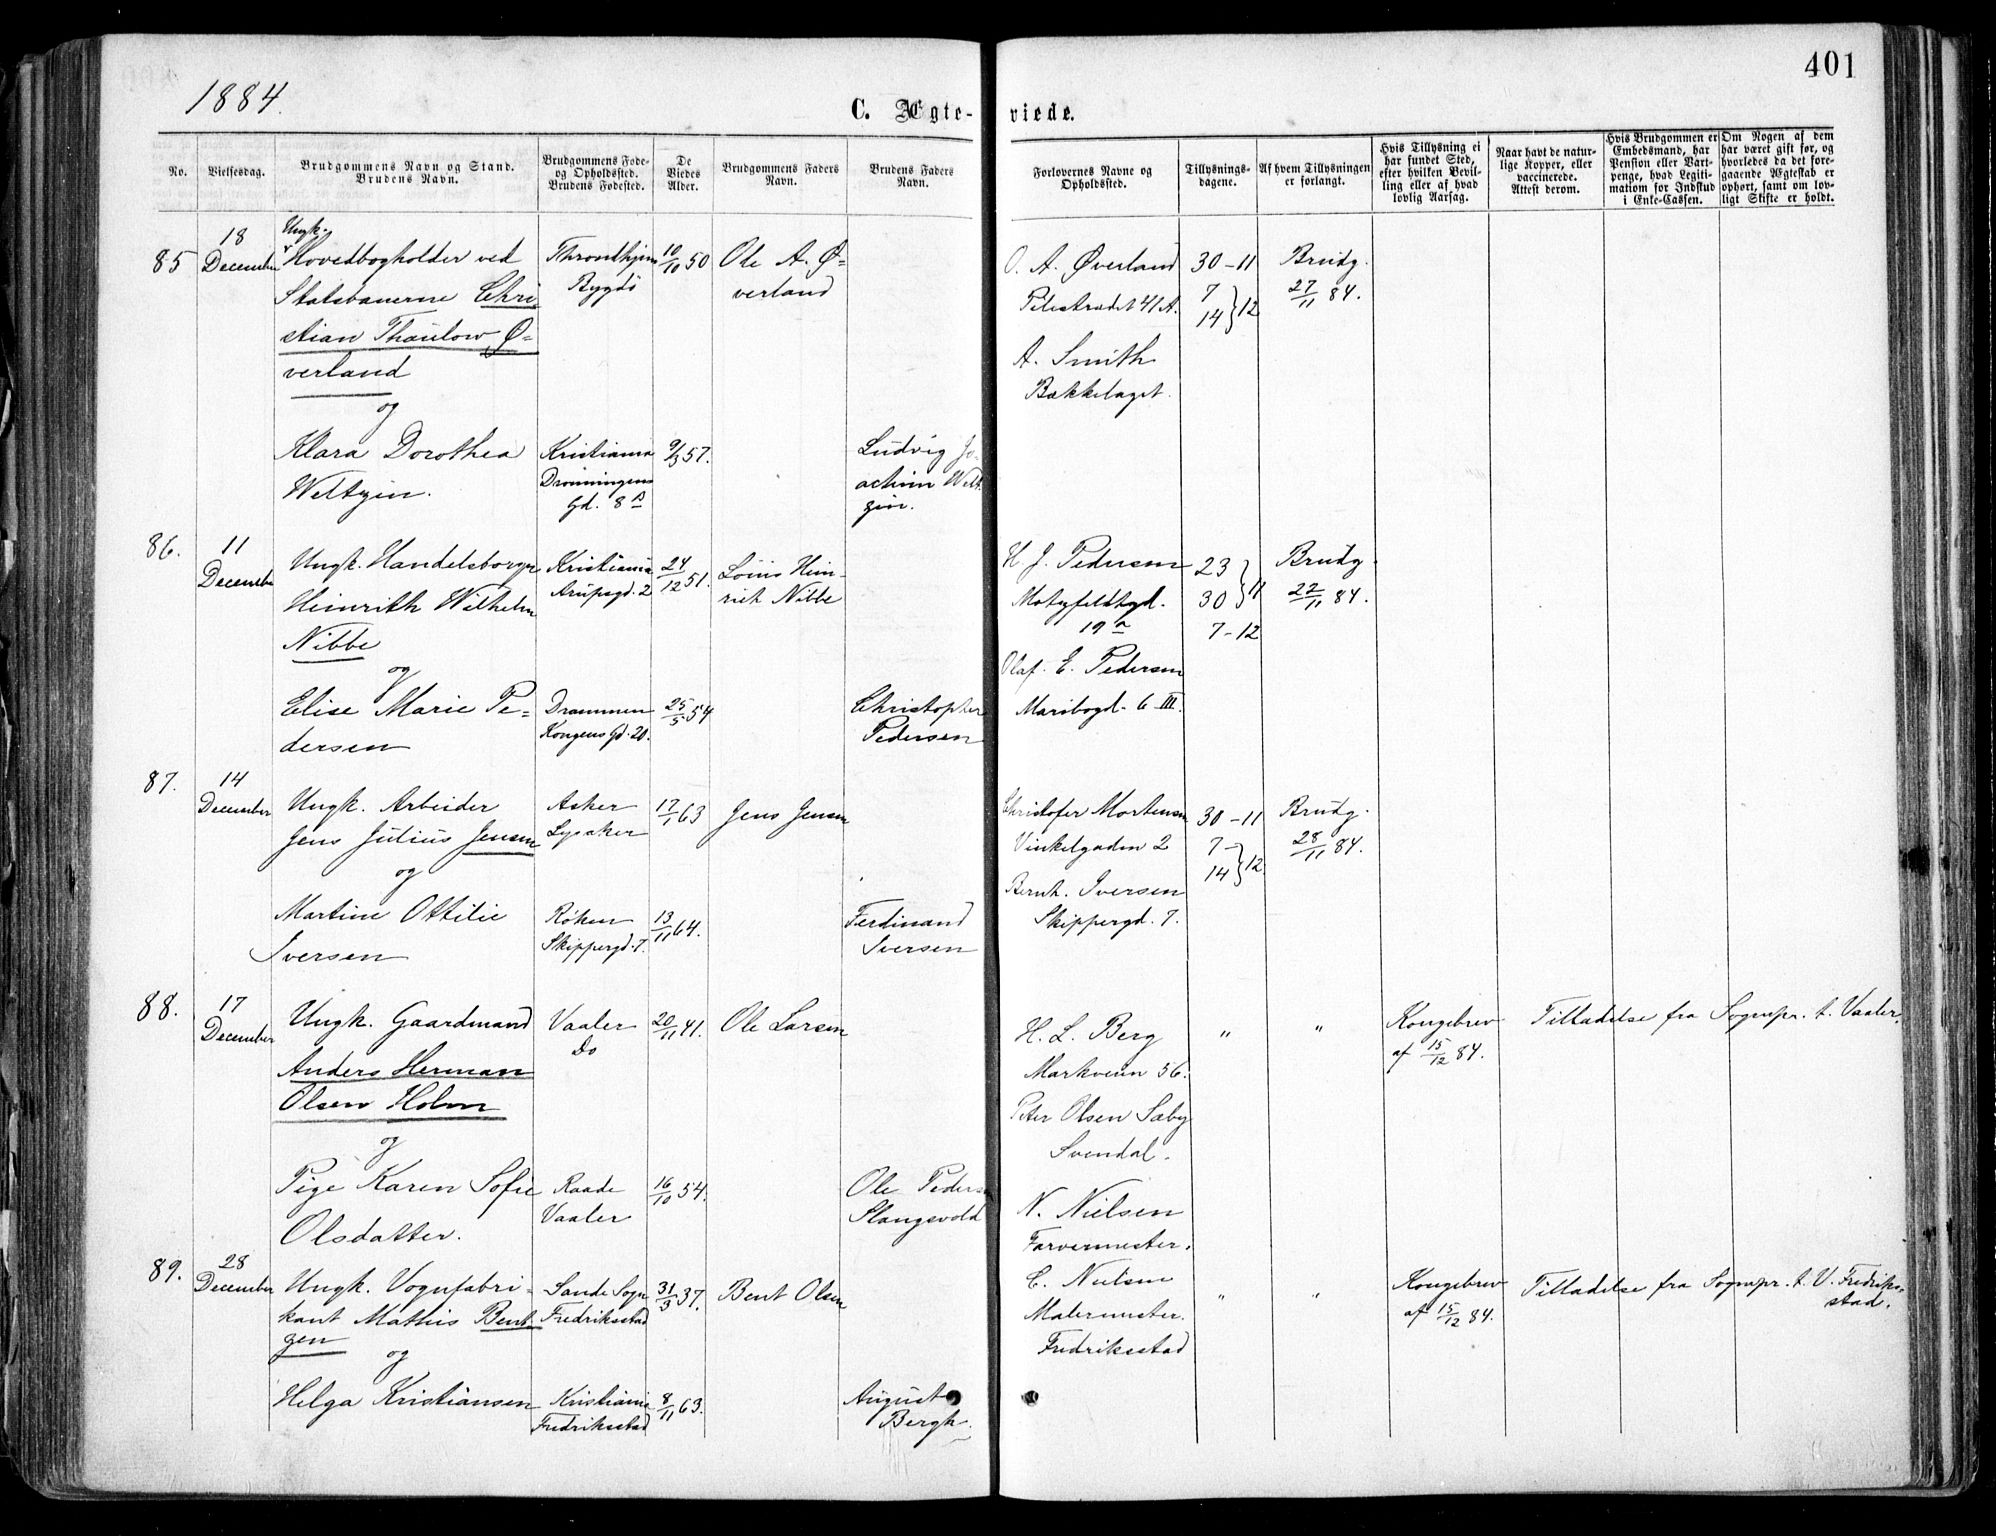 401
1884.
C. Ægte-
viede.
No.
Vielsesdag.
Brudgommens Navn og Stand.
Brudens Navn.
Brudgommens Føde-
og Opholdssted.
Brudens Fødested.
De
Viedes
Alder.
Brudgommens Faders
Navn.
Brudens Faders
Navn.
Forlovernes Navne og
Opholdssted.
Tillysnings-
dagene.
Af hvem Tillysningen
er forlangt.
Hvis Tillysning ei
har fundet Sted,
efter hvilken Bevil-
ling eller af hvad
lovlig Aarsag.
Naar havt de natur-
lige Kopper, eller
vaccinerede.
Attest derom.
Hvis Brudgommen er
Embedsmand, har
Pension eller Vart-
penge, hvad Legiti-
mation for Indskud
i Enke-Cassen.
Om Nogen af dem
har været gift før, og
hvorledes da det fore-
gaaende Ægteskab er
ophørt, samt om lov-
ligt Skifte er holdt.
85
18
December
Ungk.
Hovedbogholder ved
Statsbanerne Chri-
stian Thaulow Ø-
verland
og
Klara Dorothea
Weltzin.
Throndhjem
Bygdø
Kristiania
Dronningens
Gd. 8 B
10/10 50
9/3 57.
Ole A. Ø-
verland
Ludvig Jo-
achim Welt-
zin.
O. A. Øverland
Pilestrædet 41 A.
A. Smith
Bækkelaget.
30-11
7
14 } 12
Brudg.
27/11 84.
86.
11
December
Ungk. Handelsborger
Heinrith Wilhelm
Nibbe
og
Elise Marie Pe-
dersen
Kristiania
Arupsgd. 2
Drammen
Kongens Gd. 20.
24/12 51.
25/5 54
Louis Hein-
rich Nibbe
Christopher
Pedersen
H. J. Pedersen
Motzfeldtgd.
19 a
Olaf. E. Pedersen
Maribogd. 6 III.
23
30 } 11
7-12
Brudg.
22/11 84.
87.
14
December
Ungk. Arbeider
Jens Julius Jensen
og
Martine Ottilie
Iversen
Asker
Lysaker
Røken
Skippergd. 7.
17/1 63
13/11 64.
Jens Jensen
Ferdinand
Iversen
Christofer Mortensen
Vinkelgaden 2
Bernh. Iversen
Skippergd. 7.
30-11
7-
14 } 12.
Brudg.
28/11 84.
88.
17
December
Ungk. Gaardmand
Anders Herman
Olsen Holm
og
Pige Karen Sofie
Olsdatter.
Vaaler
Do
Raade
Vaaler
20/11 41.
16/10 54.
Ole Larsen
Ole Pedersen
Slangsvold
H. L. Berg
Markveien 56.
Peter Olsen Sæby
Svendal.
"
"
Kongebrev
af 15/12 84.
Tilladelse fra Sognepr. t. Vaaler.
89.
28
December
Ungk. Vognfabri-
kant Mathis Bent-
zen
og
Helga Kristiansen
Sande Sogn
Fredriksstad
Kristiania
Fredriksstad
31/3 37.
8/11 63.
Bent Olsen
August
Bergh.
N. Nielsen
Farvermester.
C. Nielsen
Malermester.
Fredriksstad
"
"
Kongebrev
af 15/12 84.
Tilladelse fra Sognepr. t. V. Fredriks-
stad.